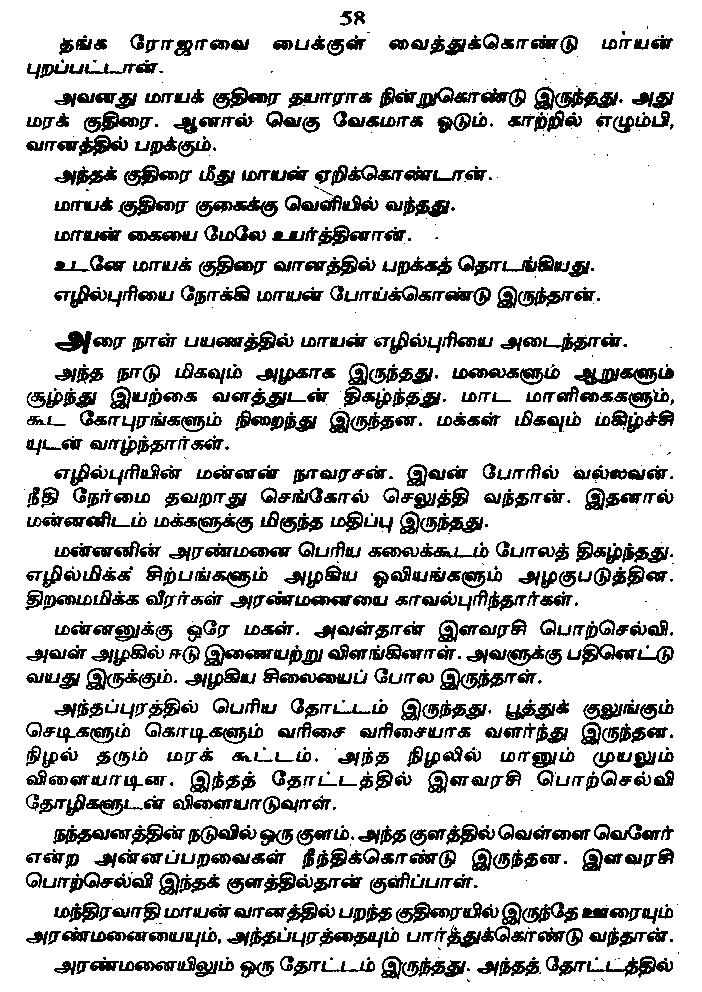 58
தங்க ரோஜாவை பைக்குள் வைத்துக்கொண்டு மாயன்
புறப்பட்டான்.
அவனது மாயக் குதிரை தயாராக நின்றுகொண்டு இருந்தது. அது
மரக் குதிரை. ஆனால் வெகு வேகமாக ஓடும். காற்றில் எழும்பி,
வானத்தில் பறக்கும்.
அந்தக் குதிரை மீது மாயன் ஏறிக்கொண்டான்.
மாயக் குதிரை குகைக்கு வெளியில் வந்தது.
மாயன் கையை மேலே உயர்த்தினான்.
உடனே மாயக் குதிரை வானத்தில் பறக்கத் தொடங்கியது.
எழில்புரியை நோக்கி மாயன் போய்க்கொண்டு இருந்தான்.
அரை நாள் பயணத்தில் மாயன் எழில்புரியை அடைந்தான்.
அந்த நாடு மிகவும் அழகாக இருந்தது. மலைகளும் ஆறுகளும்
சூழ்ந்து இயற்கை வளத்துடன் திகழ்ந்தது. மாட மாளிகைகளும்,
கூட கோபுரங்களும் நிறைந்து இருந்தன. மக்கள் மிகவும் மகிழ்ச்சி
யுடன் வாழ்ந்தார்கள்.
எழில்புரியின் மன்னன் நாவரசன். இவன் போரில் வல்லவன்.
நீதி நேர்மை தவறாது செங்கோல் செலுத்தி வந்தான். இதனால்
மன்னனிடம் மக்களுக்கு மிகுந்த மதிப்பு இருந்தது.
மன்னனின் அரண்மனை பெரிய கலைக்கூடம் போலத் திகழ்ந்தது.
எழில்மிக்க சிற்பங்களும் அழகிய ஓவியங்களும் அழகுபடுத்தின.
திறமைமிக்க வீரர்கள் அரண்மனையை காவல்புரிந்தார்கள்.
மன்னனுக்கு ஒரே மகள். அவள்தான் இளவரசி பொற்செல்வி.
அவள் அழகில் ஈடு இணையற்று விளங்கினாள். அவளுக்கு பதினெட்டு
வயது இருக்கும். அழகிய சிலையைப் போல இருந்தாள்.
அந்தப்புரத்தில் பெரிய தோட்டம் இருந்தது. பூத்துக் குலுங்கும்
செடிகளும் கொடிகளும் வரிசை வரிசையாக வளர்ந்து இருந்தன.
நிழல் தரும் மரக் கூட்டம். அந்த நிழலில் மானும் முயலும்
விளையாடின. இந்தத் தோட்டத்தில் இளவரசி பொற்செல்வி
தோழிகளுடன் விளையாடுவாள்.
நந்தவனத்தின் நடுவில் ஒரு குளம். அந்த குளத்தில் வெள்ளை வெளேர்
என்ற அன்னப்பறவைகள் நீந்திக்கொண்டு இருந்தன. இளவரசி
பொற்செல்வி இந்தக் குளத்தில்தான் குளிப்பாள்.
மந்திரவாதி மாயன் வானத்தில் பறந்த குதிரையில் இருந்தே ஊரையும்
அரண்மனையையும், அந்தப்புரத்தையும் பார்த்துக்கொண்டு வந்தான்.
அரண்மனையிலும் ஒரு தோட்டம் இருந்தது. அந்தத் தோட்டத்தில்